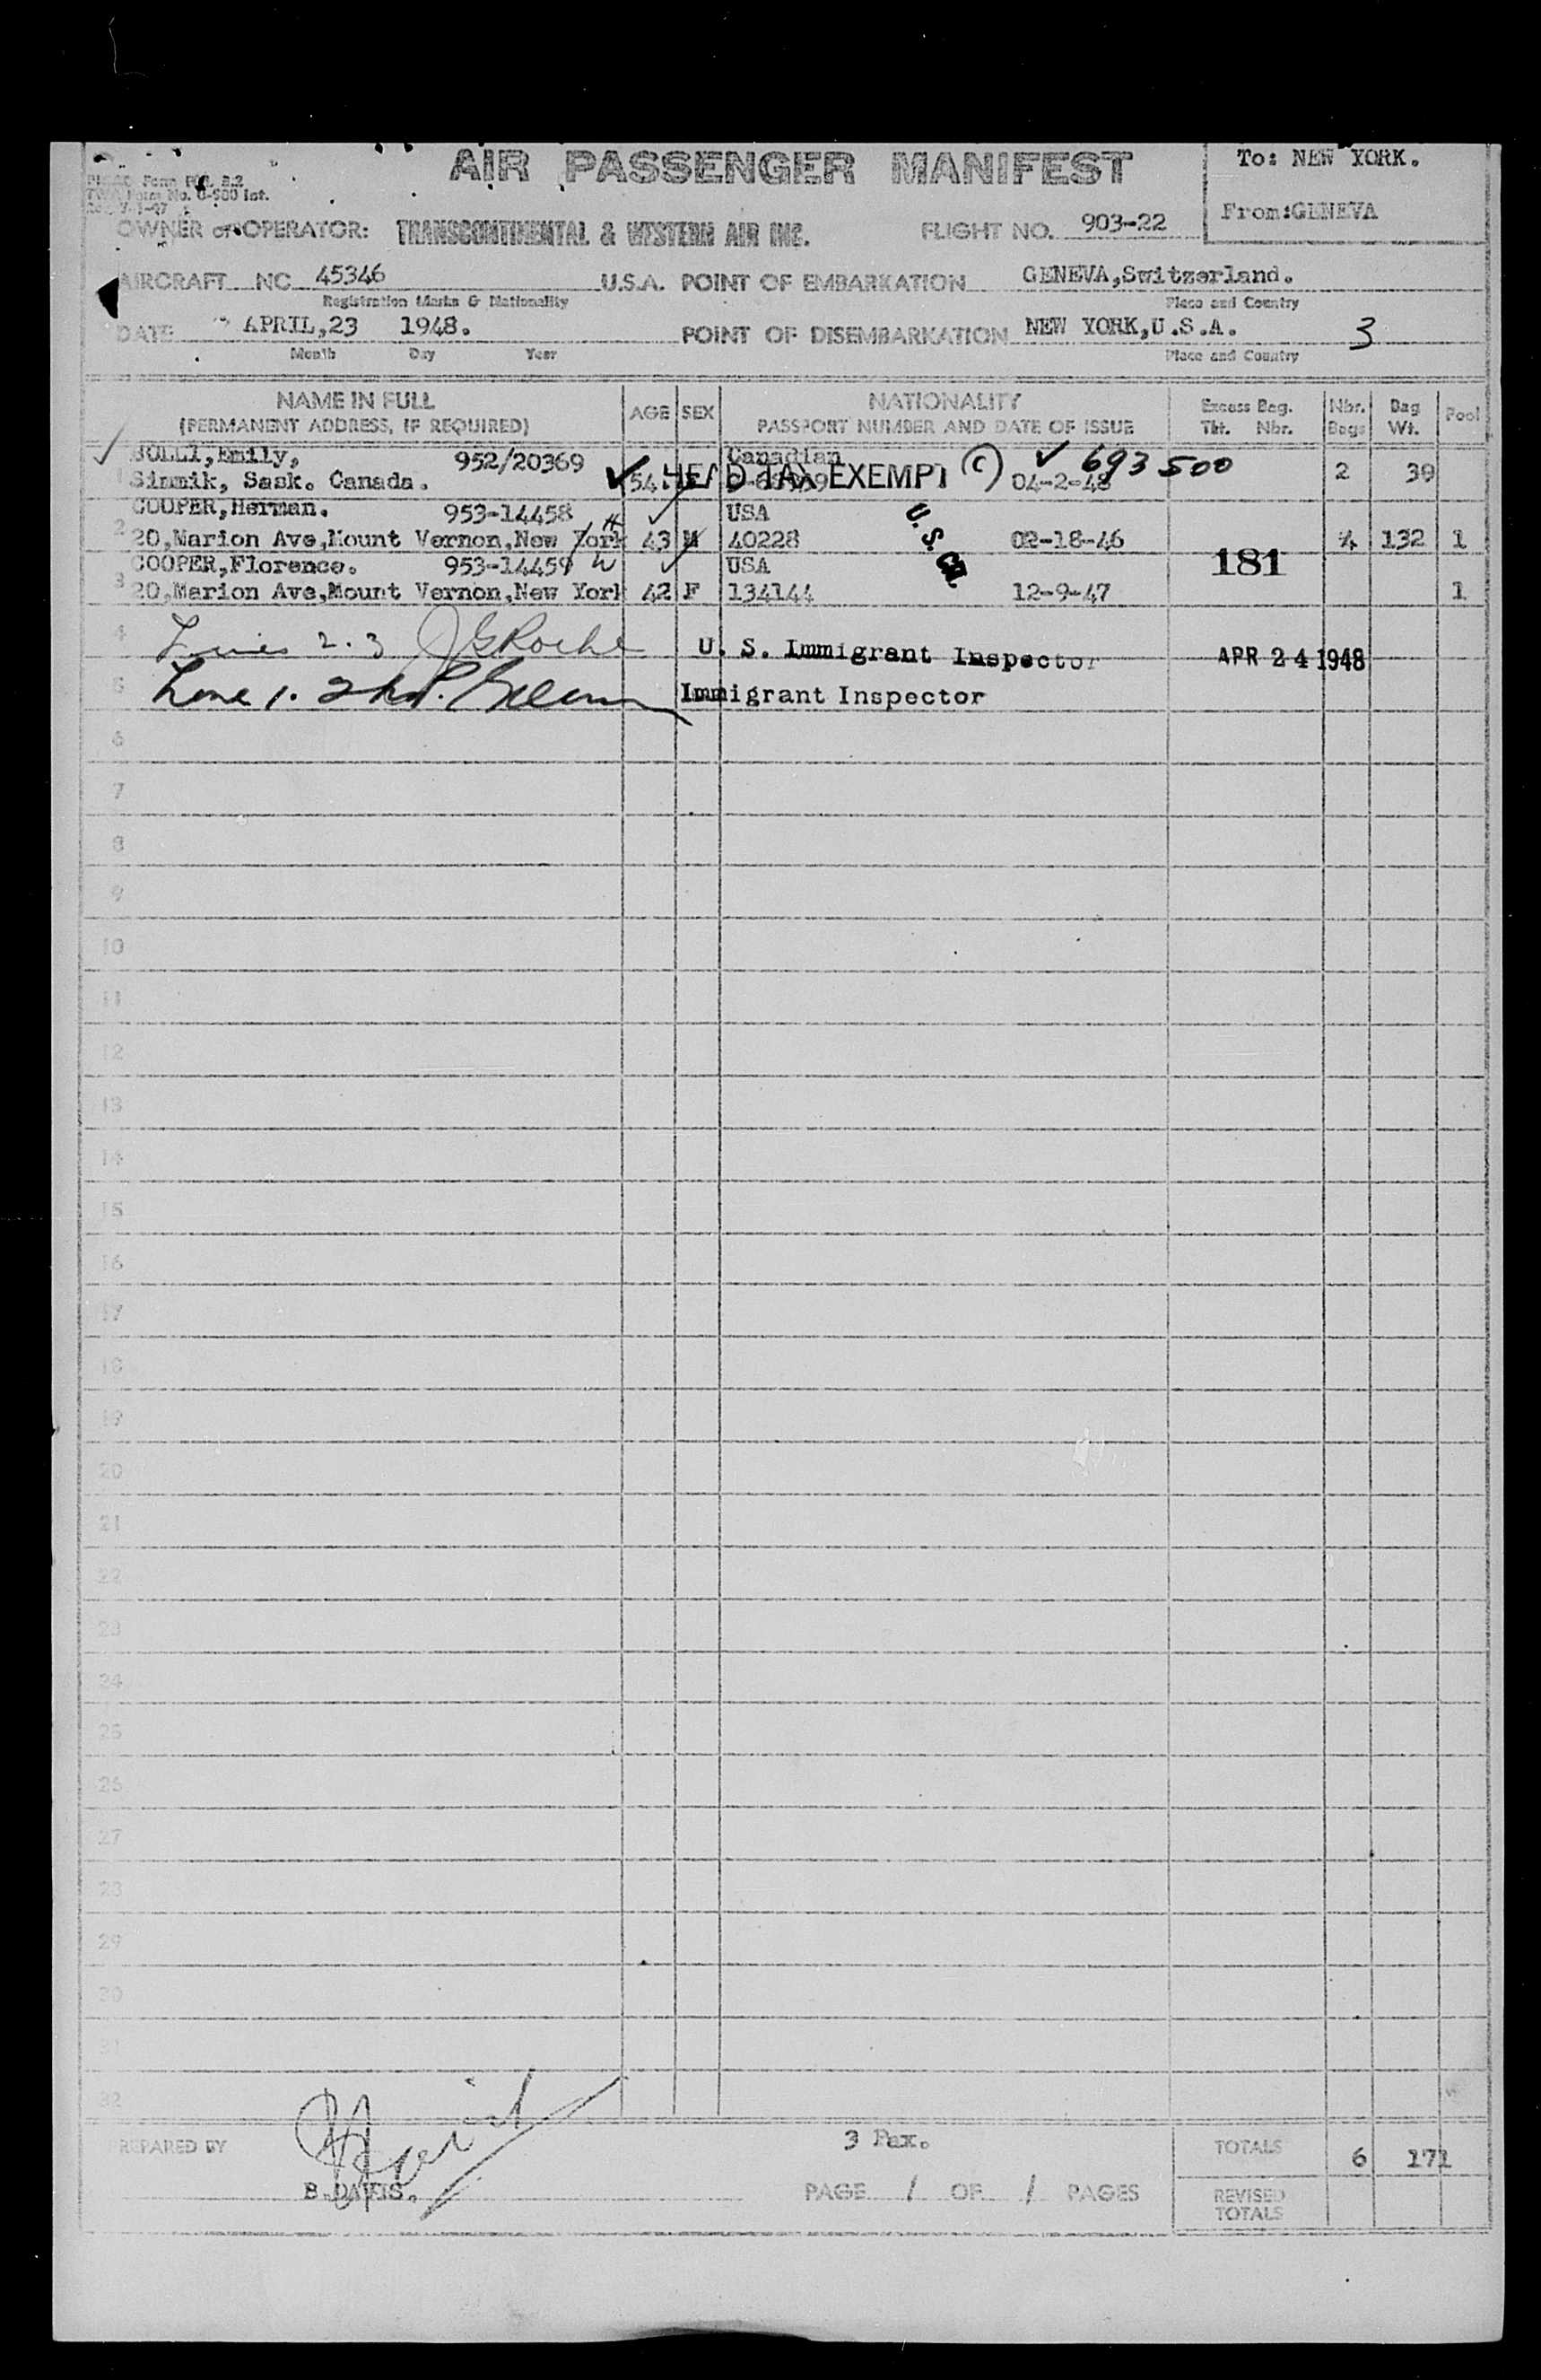 AIR PASSENGER MANIFEST
To: NEW YORK.
From:GENEVA
OWNER or OPERATOR: TRANSCONTINENTAL & WESTERN AIR INC. FLIGHT NO. 903-22
AIRCRAFT NC 45346 U.S.A. POINT OF EMBARKATION GENEVA,Switzerland.
Registration Marks & Nationality Place and Country
DATE APRIL,23 1948. POINT OF DISEMBARKATION NEW YORK,U.S.A. 3
Month Day Year Place and Country
NAME IN FULL AGE SEX NATIONALITY Excess Bag. Nbr. Bag Pool
(PERMANENT ADDRESS, IF REQUIRED) PASSPORT NUMBER AND DATE OF ISSUE Tkt. Nbr. Bags Wt.
BOLLI,Emily, 952/20369 Canadian 693500
1 Simmik, Sask. Canada. 54 HEAD TAX EXEMPT (C) 04-2-48 2 39
COOPER,Herman. 953-14458 USA U.S.
2 20,Marion Ave,Mount Vernon,New York 43 M 40228 02-18-46 4 132 1
COOPER,Florence. 953-14459 USA 181
3 20,Marion Ave,Mount Vernon,New York 42 F 134144 12-9-47 1
4 Lines 2.3 J G Roche U. S. Immigrant Inspector APR 24 1948
5 Line 1. Immigrant Inspector
6
7
8
9
10
11
12
13
14
15
16
17
18
19
20
21
22
23
24
25
26
27
28
29
30
31
32
PREPARED BY 3 Pax. TOTALS 6 171
B.DAVIS. PAGE 1 OF 1 PAGES REVISED
TOTALS